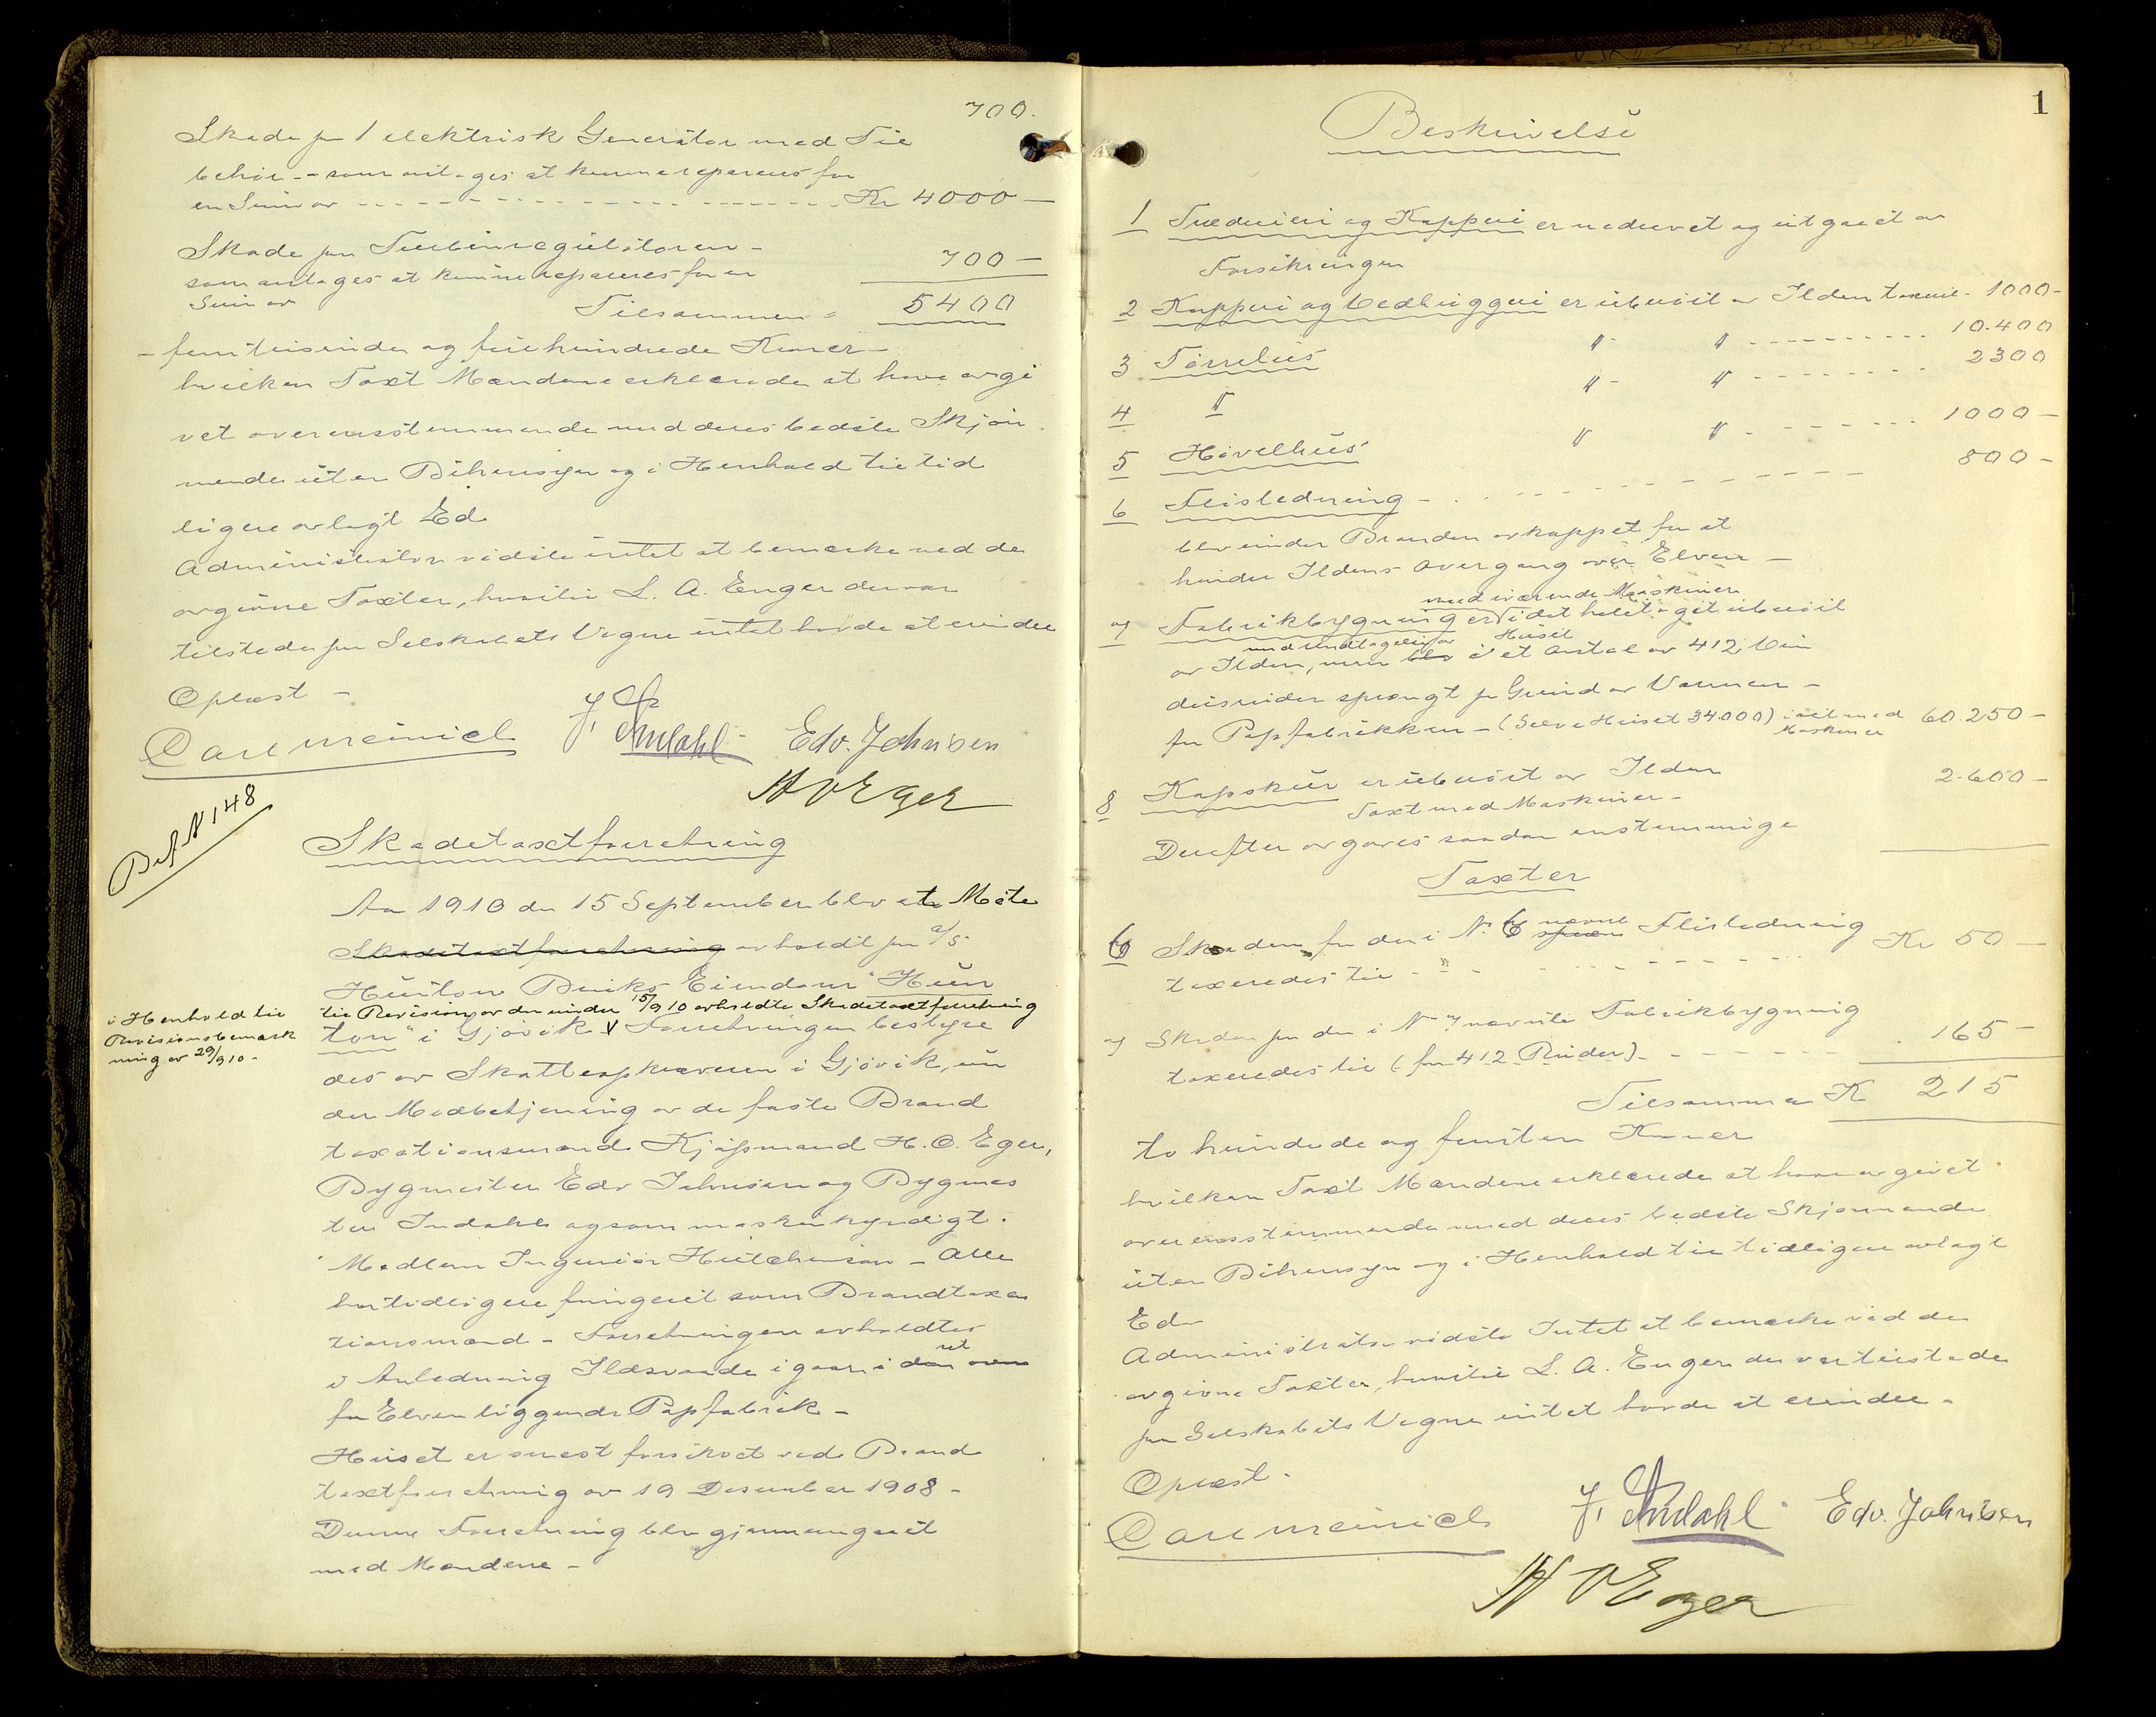 700.
Skade paa 1 elektrisk Generator med Til
behør -- som antages at kunne repareres for
en Sum av Kr 4000 —
Skade paa Turbinregulatoren -
som antages at kunne repareres for en
Sum av 700 —
Tilsammen = 5400
- femtusinde og firehundrede Kroner -
hvilken Taxt Mændene erklærede at have avgi
vet overensstemmende med deres bedste Skjøn
nende uten Bihensyn og i Henhold til tid
ligere avlagt Ed.
Administrator vidste intet at bemærke ved de
avgivne Taxter, hvortil L. A. Enger der var
tilstede paa Selskabets Vegne intet havde at erindre
Oplæst -
Carl Meinich J. Indahl Edv. Johnsen
H O Eger
Bef N 148
Skadetaxtforretning
Aar 1910 den 15 September blev et Møte
Skadetaxtforretning avholdt paa a/s
Hunton Bruks Eiendom "Hun
til Revision av den under 15/9 10 avholdte Skadetaxtforretning
i Henhold til
Revisionsbemærk
ning av 29/9 10 -
ton" i Gjøvik V Forretningen bestyre
des av Skatteopkræveren i Gjøvik, un
der Medbetjening av de faste Brand
taxationsmænd Kjøpmand H. O. Eger,
Bygmester Edv Johnsen og Bygmes
ter Indahl og som maskinkyndigt
Medlem Ingeniør Hutchinson - Alle
har tidligere fungeret som Brandtaxa
tionsmænd - Forretningen avholdtes
i Anledning Ildsvaade i gaar i den ut oven
for Elven liggende Papfabrik -
Huset er senest forsikret ved Brand
taxtforretning av 19 Desember 1908 -
Denne Forretning blev gjennemgaaet
med Mændene -
1
Beskrivelse
1 Træsliperi og Kapperi er nedrevet og utgaaet av
Forsikringen
2 Kapperi og Vedbryggeri er uberørt av Ilden taxeret - 1000 -
3 Tørrehus " " 10.400
4 " " " 2300
5 Høvelhus " " 1000 —
6 Flisledning - 800 -
blev under Branden avkappet for at
hindre Ildens Overgang over Elven —
med iværende Maskiner
7 Fabrikbygning er V i det hele taget uberørt
med Undtagelse av Huset
av Ilden, men blev i et Antal av 412 Vin
duesruder sprængt paa Grund av Varmen -
for Papfabrikken - (Selve Huset 34.000) i alt med Maskiner 60.250 —
8 Kapskur er uberørt av Ilden 2.600 —
Taxt med Maskiner -
Derefter avgaves saadan enstemmige
Taxter
6 Skaden for den i N. 6 nævnte Flisledning
taxeredes til Kr 50 —
7 Skaden paa den i N 7 nævnte Fabrikbygning
taxeredes til (for 412 Ruder) 165 —
Tilsammen K 215
to hundrede og femten Kroner
hvilken Taxt Mændene erklærede at have avgivet
overensstemmende med deres bedste Skjønnende
uten Bihensyn og i Henhold til tidligere avlagt
Ed -
Administrator vidste Intet at bemærke ved de
avgivne Taxter, hvortil L. A. Enger der var tilstede
paa Selskabets Vegne intet havde at erindre -
Oplæst -
Carl Meinich J. Indahl Edv. Johnsen
H O Eger